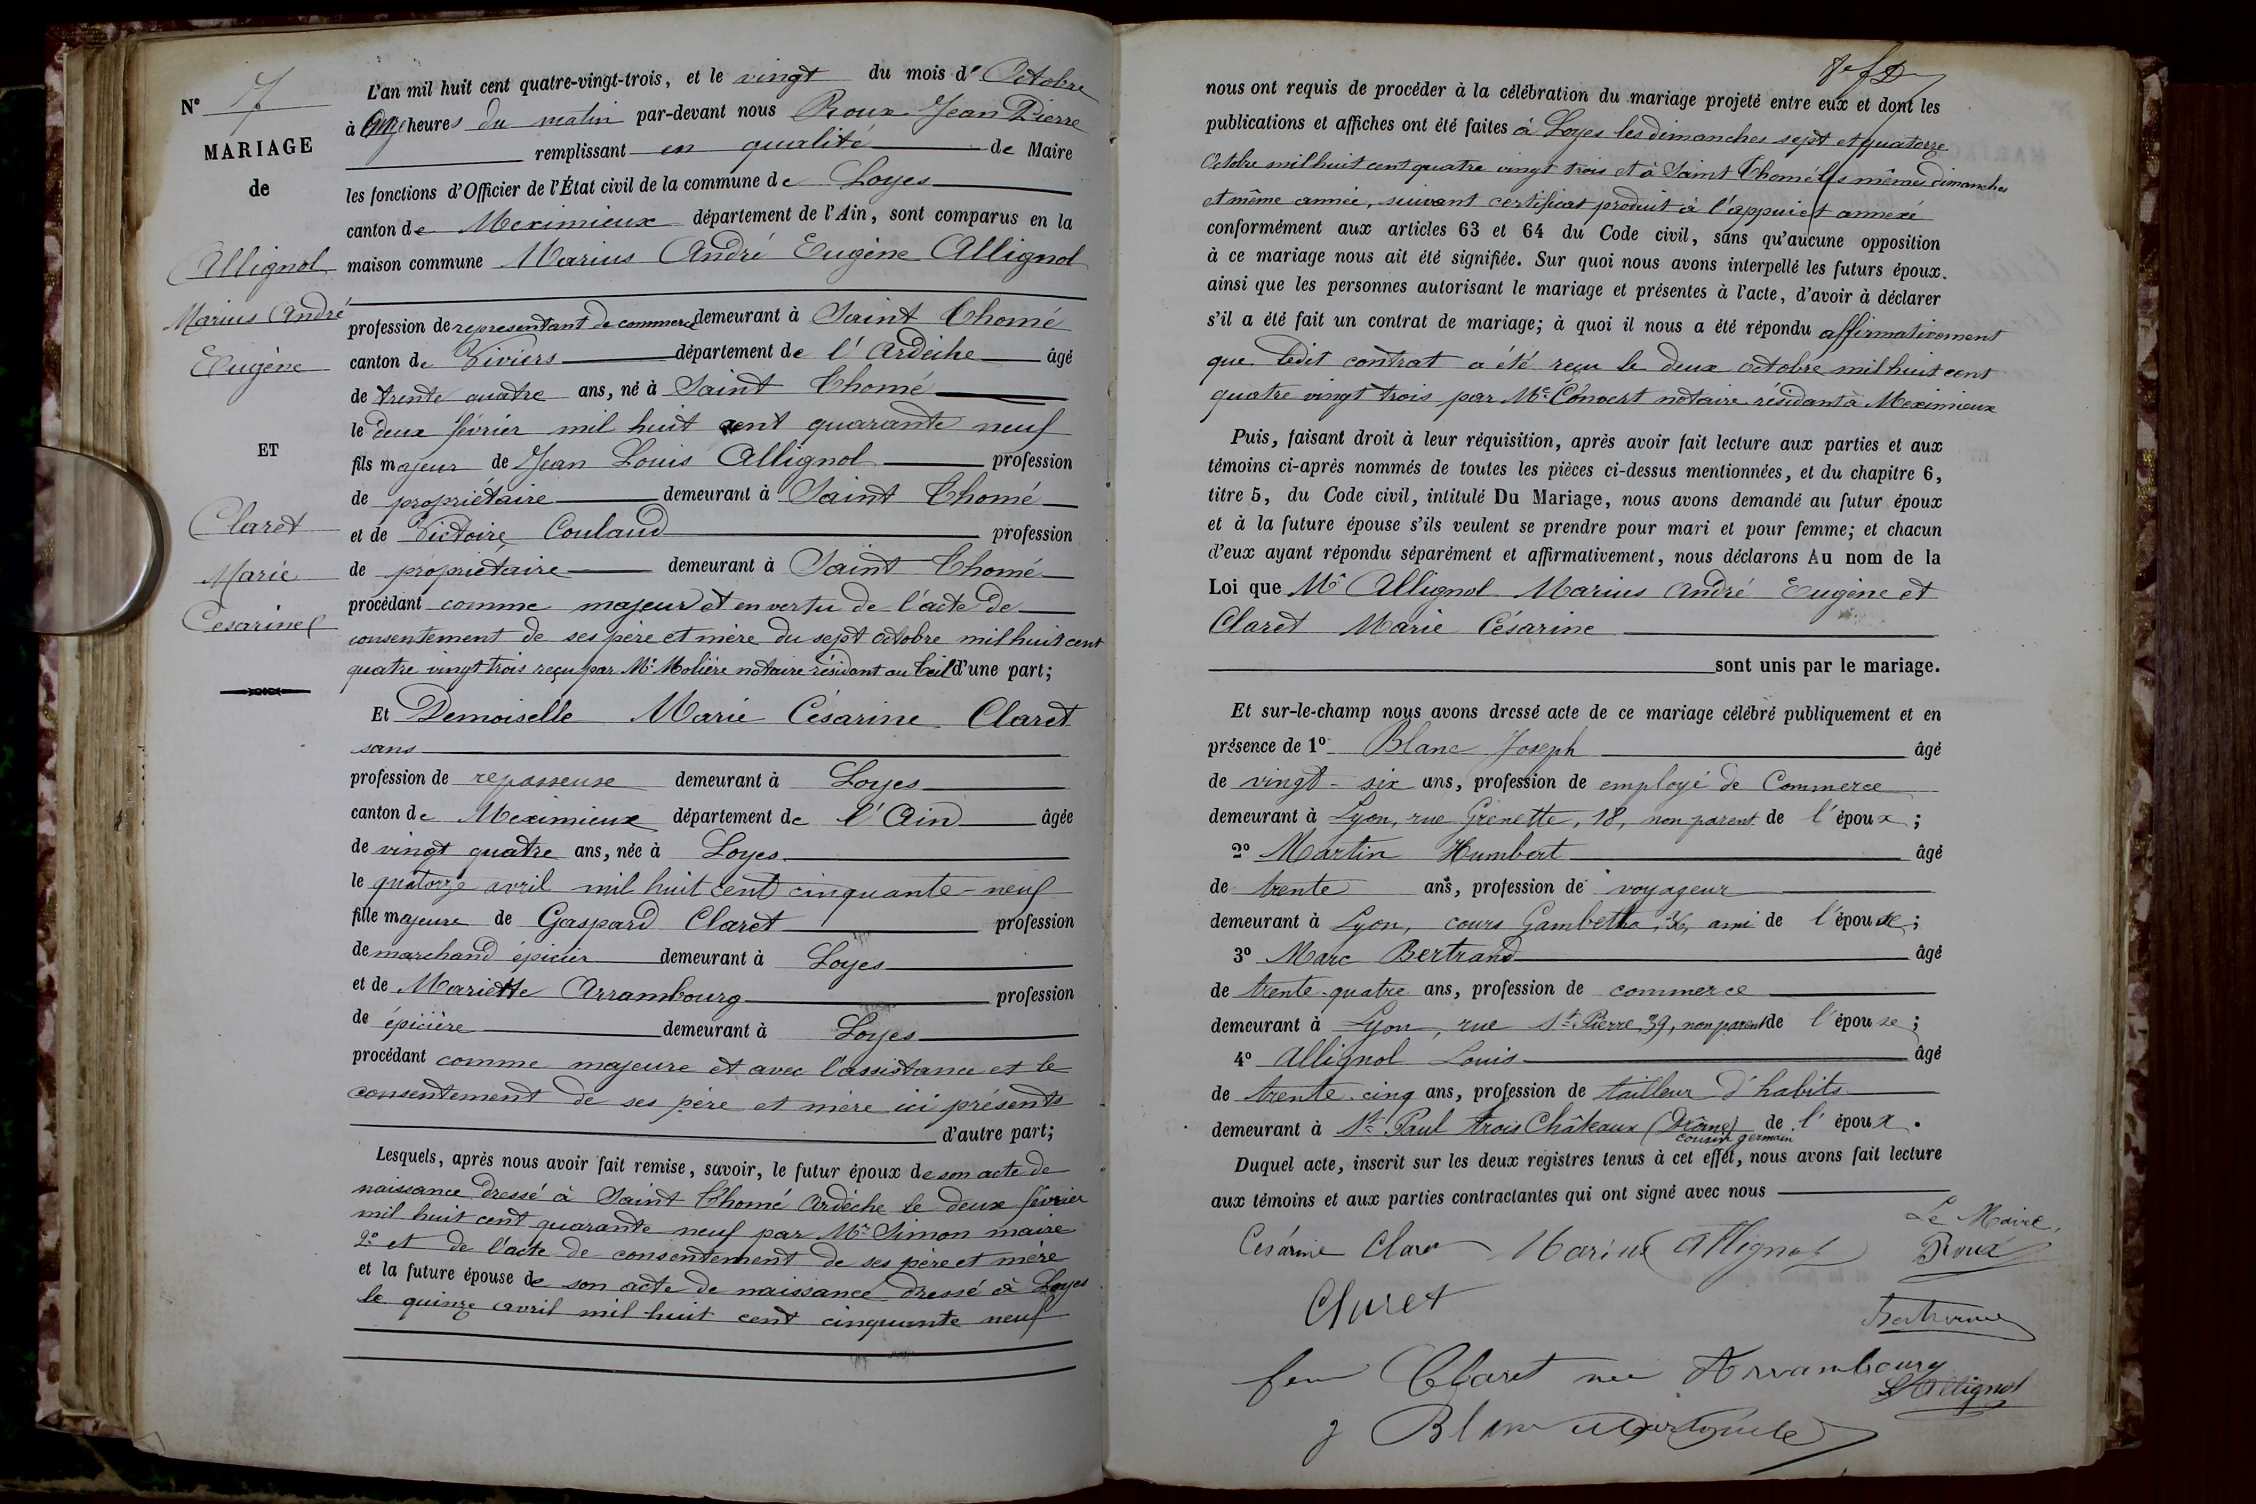 N° 7
MARIAGE
de
Allignol
Marius André
Eugène
ET
Claret
Marie
Césarine
L'an mil huit cent quatre-vingt-trois, et le vingt du mois d' Octobre
à onze heures du matin par-devant nous Roux Jean Pierre
remplissant en qualité de Maire
les fonctions d'Officier de l'État civil de la commune de Loyes
canton de Meximieux département de l'Ain, sont comparus en la
maison commune Marius André Eugène Allignol
profession de representant de commerce demeurant à Saint Thomé
canton de Viviers département de l'Ardèche âgé
de trente quatre ans, né à Saint Thomé
le deux février mil huit cent quarante neuf
fils majeur de Jean Louis Allignol profession
de propriétaire demeurant à Saint Thomé
et de Victoire Couland profession
de propriétaire demeurant à Saint Thomé
procédant comme majeur et en vertu de l'acte de
consentement de ses père et mère du sept octobre mil huit cent
quatre vingt trois reçu par Me Molière notaire résidant au Teil d'une part;
Et Demoiselle Marie Césarine Claret
sans
profession de repasseuse demeurant à Loyes
canton de Meximieux département de l'Ain âgée
de vingt quatre ans, née à Loyes
le quatorze avril mil huit cent cinquante-neuf
fille majeure de Gaspard Claret profession
de marchand épicier demeurant à Loyes
et de Mariette Arrambourg profession
de épicière demeurant à Loyes
procédant comme majeure et avec l'assistance et le
consentement de ses père et mère ici présents
d'autre part;
Lesquels, après nous avoir fait remise, savoir, le futur époux de son acte de
naissance dressé à Saint Thomé Ardèche le deux février
mil huit cent quarante neuf par Mr Simon maire
2° et de l'acte de consentement de ses père et mère
et la future épouse de son acte de naissance dressé à Loyes
le quinze avril mil huit cent cinquante neuf
nous ont requis de procéder à la célébration du mariage projeté entre eux et dont les
publications et affiches ont été faites à Loyes les dimanches sept et quatorze
Octobre mil huit cent quatre vingt trois et à Saint Thomé les mêmes dimanches
et même année, suivant certificat produit à l'appui et annexé
conformément aux articles 63 et 64 du Code civil, sans qu'aucune opposition
à ce mariage nous ait été signifiée. Sur quoi nous avons interpellé les futurs époux.
ainsi que les personnes autorisant le mariage et présentes à l'acte, d'avoir à déclarer
s'il a été fait un contrat de mariage; à quoi il nous a été répondu affirmativement
que ledit contrat a été reçu le deux octobre mil huit cent
quatre vingt trois par Me Convert notaire résidant à Meximieux
Puis, faisant droit à leur réquisition, après avoir fait lecture aux parties et aux
témoins ci-après nommés de toutes les pièces ci-dessus mentionnées, et du chapitre 6,
titre 5, du Code civil, intitulé Du Mariage, nous avons demandé au futur époux
et à la future épouse s'ils veulent se prendre pour mari et pour femme; et chacun
d'eux ayant répondu séparément et affirmativement, nous déclarons Au nom de la
Loi que Mr Allignol Marius André Eugène et
Claret Marie Césarine
sont unis par le mariage.
Et sur-le-champ nous avons dressé acte de ce mariage célébré publiquement et en
présence de 1° Blanc Joseph âgé
de vingt-six ans, profession de employé de Commerce
demeurant à Lyon, rue Grenette, 18, non parent de l'époux;
2° Martin Humbert âgé
de trente ans, profession de voyageur
demeurant à Lyon, cours Gambetta, 36, ami de l'épouse;
3° Marc Bertrand âgé
de trente-quatre ans, profession de commerce
demeurant à Lyon, rue St Pierre, 39, non parent de l'épouse;
4° Allignol Louis âgé
de trente-cinq ans, profession de tailleur d'habits
demeurant à St Paul trois Châteaux (Drôme) de l'époux.
cousin germain
Duquel acte, inscrit sur les deux registres tenus à cet effet, nous avons fait lecture
aux témoins et aux parties contractantes qui ont signé avec nous
Le Maire,
Césarine Claret Marius Allignol Roux
Claret
Bertrand
fem Claret née Arrambourg
Allignol
J Blanc